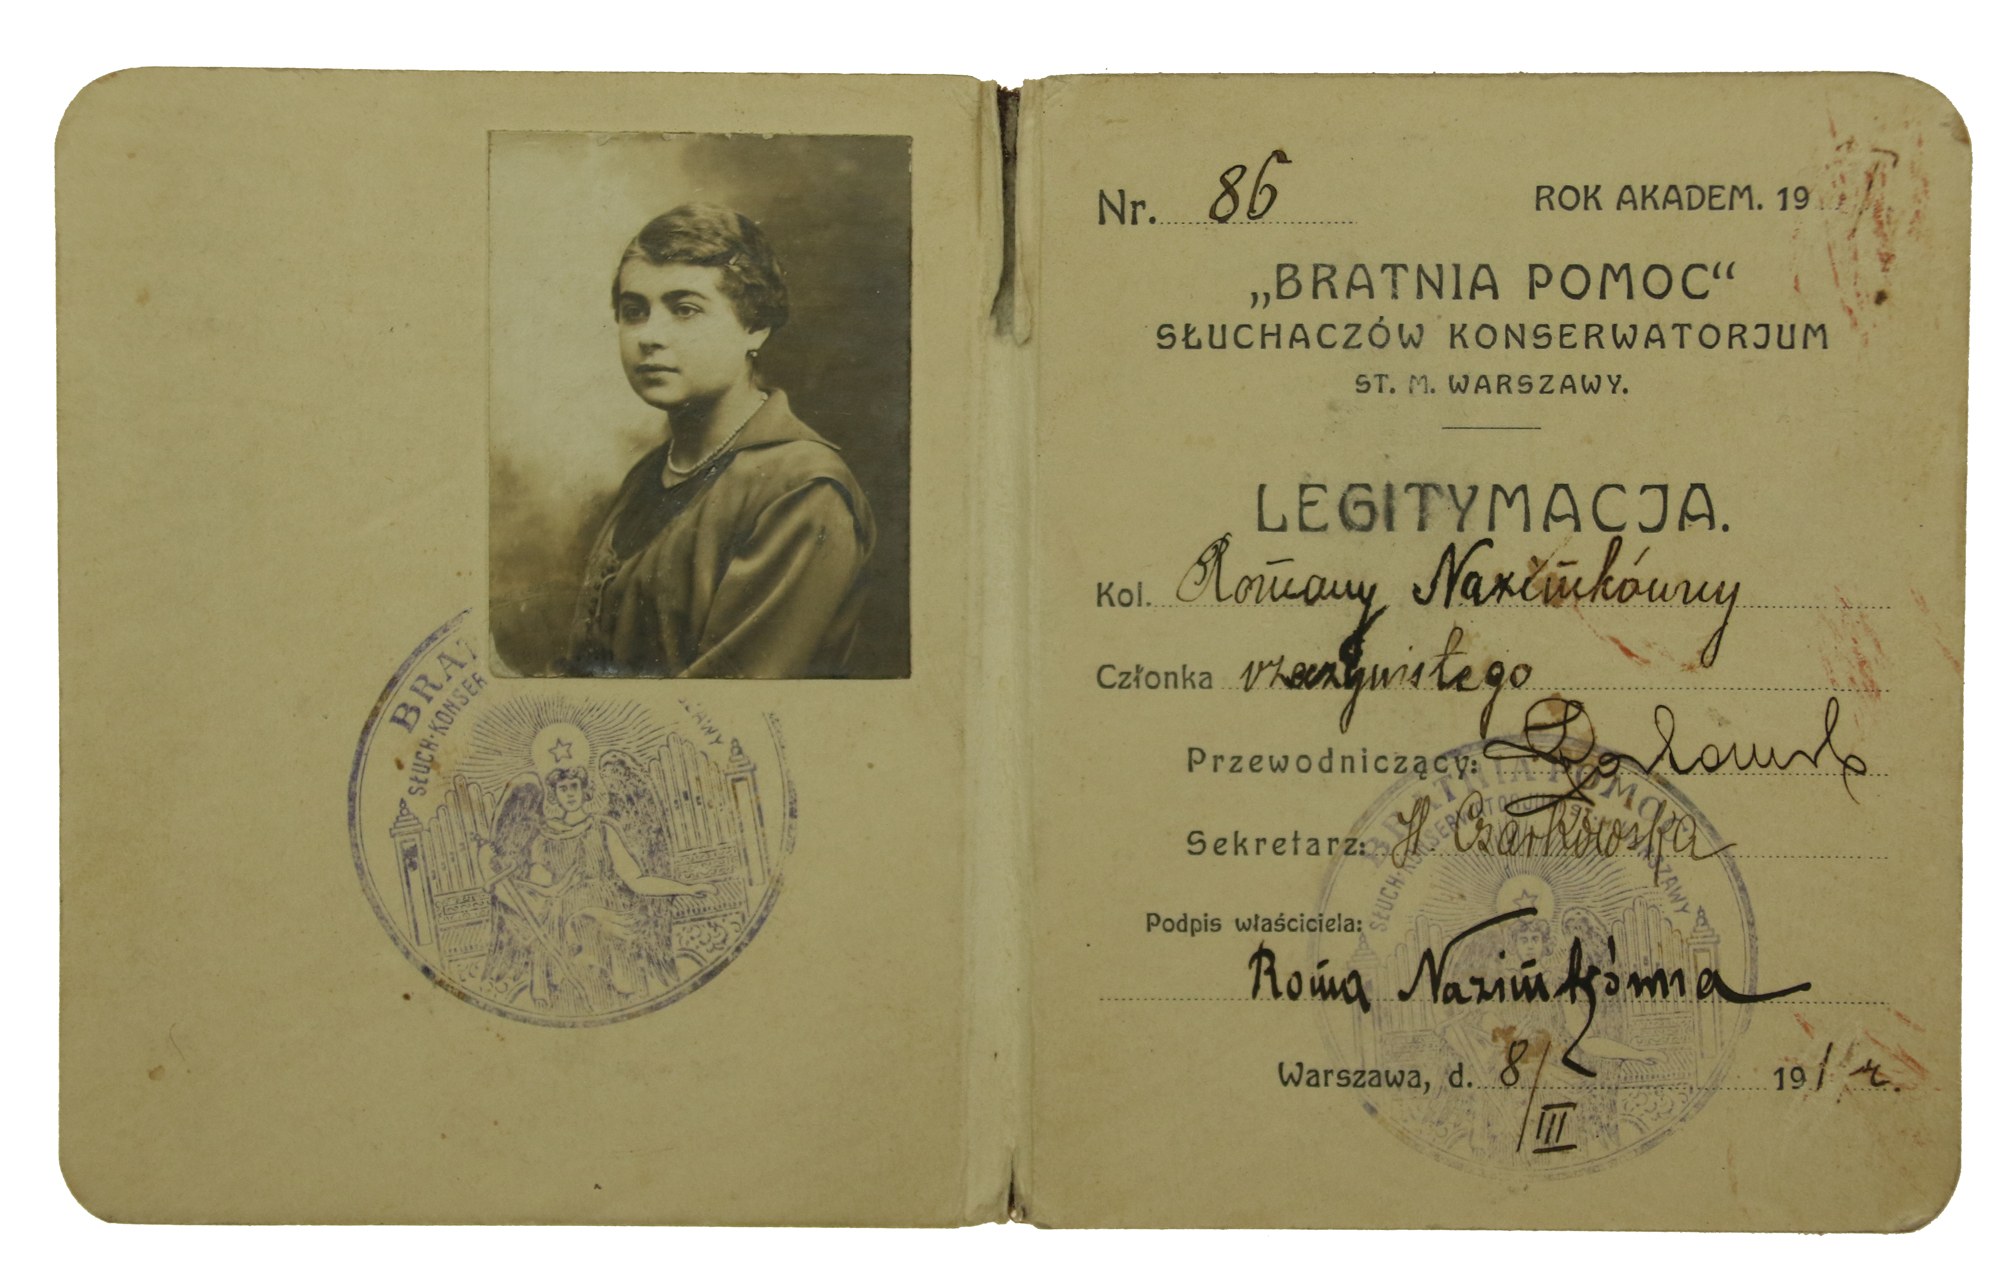 BRAT
SŁUCH·KONSER
SŁAWY
Nr. 86 ROK AKADEM. 19
„BRATNIA POMOC“
SŁUCHACZÓW KONSERWATORJUM
ST. M. WARSZAWY.
LEGITYMACJA.
Kol. Romany Nazimkówny
Członka rzeczywistego
Przewodniczący:
Sekretarz: H. Czarkowska
BRATNIA POMOC
SŁUCH·KONSERWATORJUM
Podpis właściciela:
Roma Nazimkówna
Warszawa, d. 8/III 191 r.